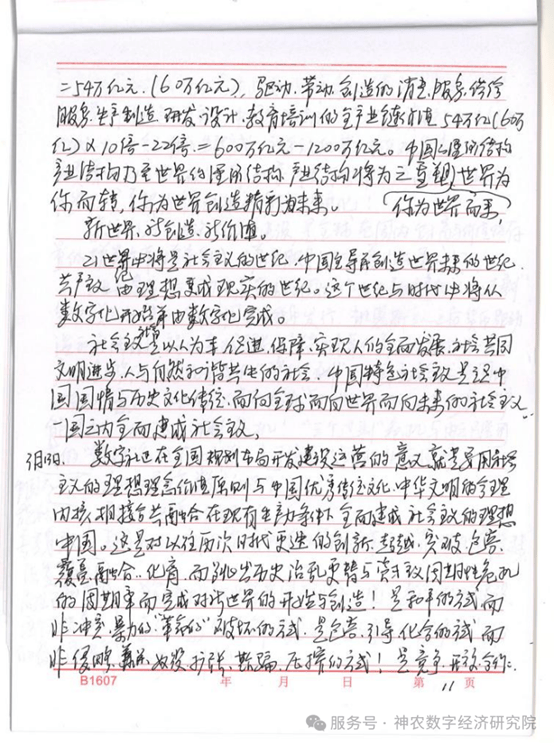 =54万亿元.(60万亿元),驱动.带动.创造的消费.服务.供给
服务.生产制造.研发.设计.教育培训的全产业链打造54万(60万
亿)×10倍-22倍.=600万亿元-1200万亿元。中国的结构
产业结构乃至世界的结构产业结构将为之重塑!世界为
你而转,你为世界创造精彩为未来。
你为世界而来,
新世界.新创造.新价值。
21世界中将是社会主义的世纪.中国主导创造世界未来的世纪.
共产主义由理想变成现实的世纪。这个世纪与时代中将从
数字化开始并由数字化完成。
社会主义是以人为本.促进.保障.实现人的全面发展.社会共同
文明进步.人与自然和谐共生的社会.中国特色社会主义是立足中
国国情与历史文化传统.面向全球面向世界面向未来的社会主义
一国之内全面建成社会主义.
3月13日. 数字社区在全国规划布局开发建设运营的意义就是要用社会
主义的理想理念价值原则与中国优秀传统文化.中华文明的合理
内核相接合共融合在现有生产力条件下全面建成社会主义的理想
中国。这是对以往历次时代更迭的创新.超越.突破.包容.
覆盖.融合.化育.而跳出历史治乱更替与资本主义周期性危机
的周期率而完成对新世界的开始与创造!是和平的方式而
非冲突.暴力的"革命的"破坏的方式.是包容.引导.化合的方式而
非侵略.兼并.奴役.扩张.欺骗.压榨的方式!是竞争.开放.合作.
B1607 年 月 日 第 11 页
服务号·神农数字经济研究院